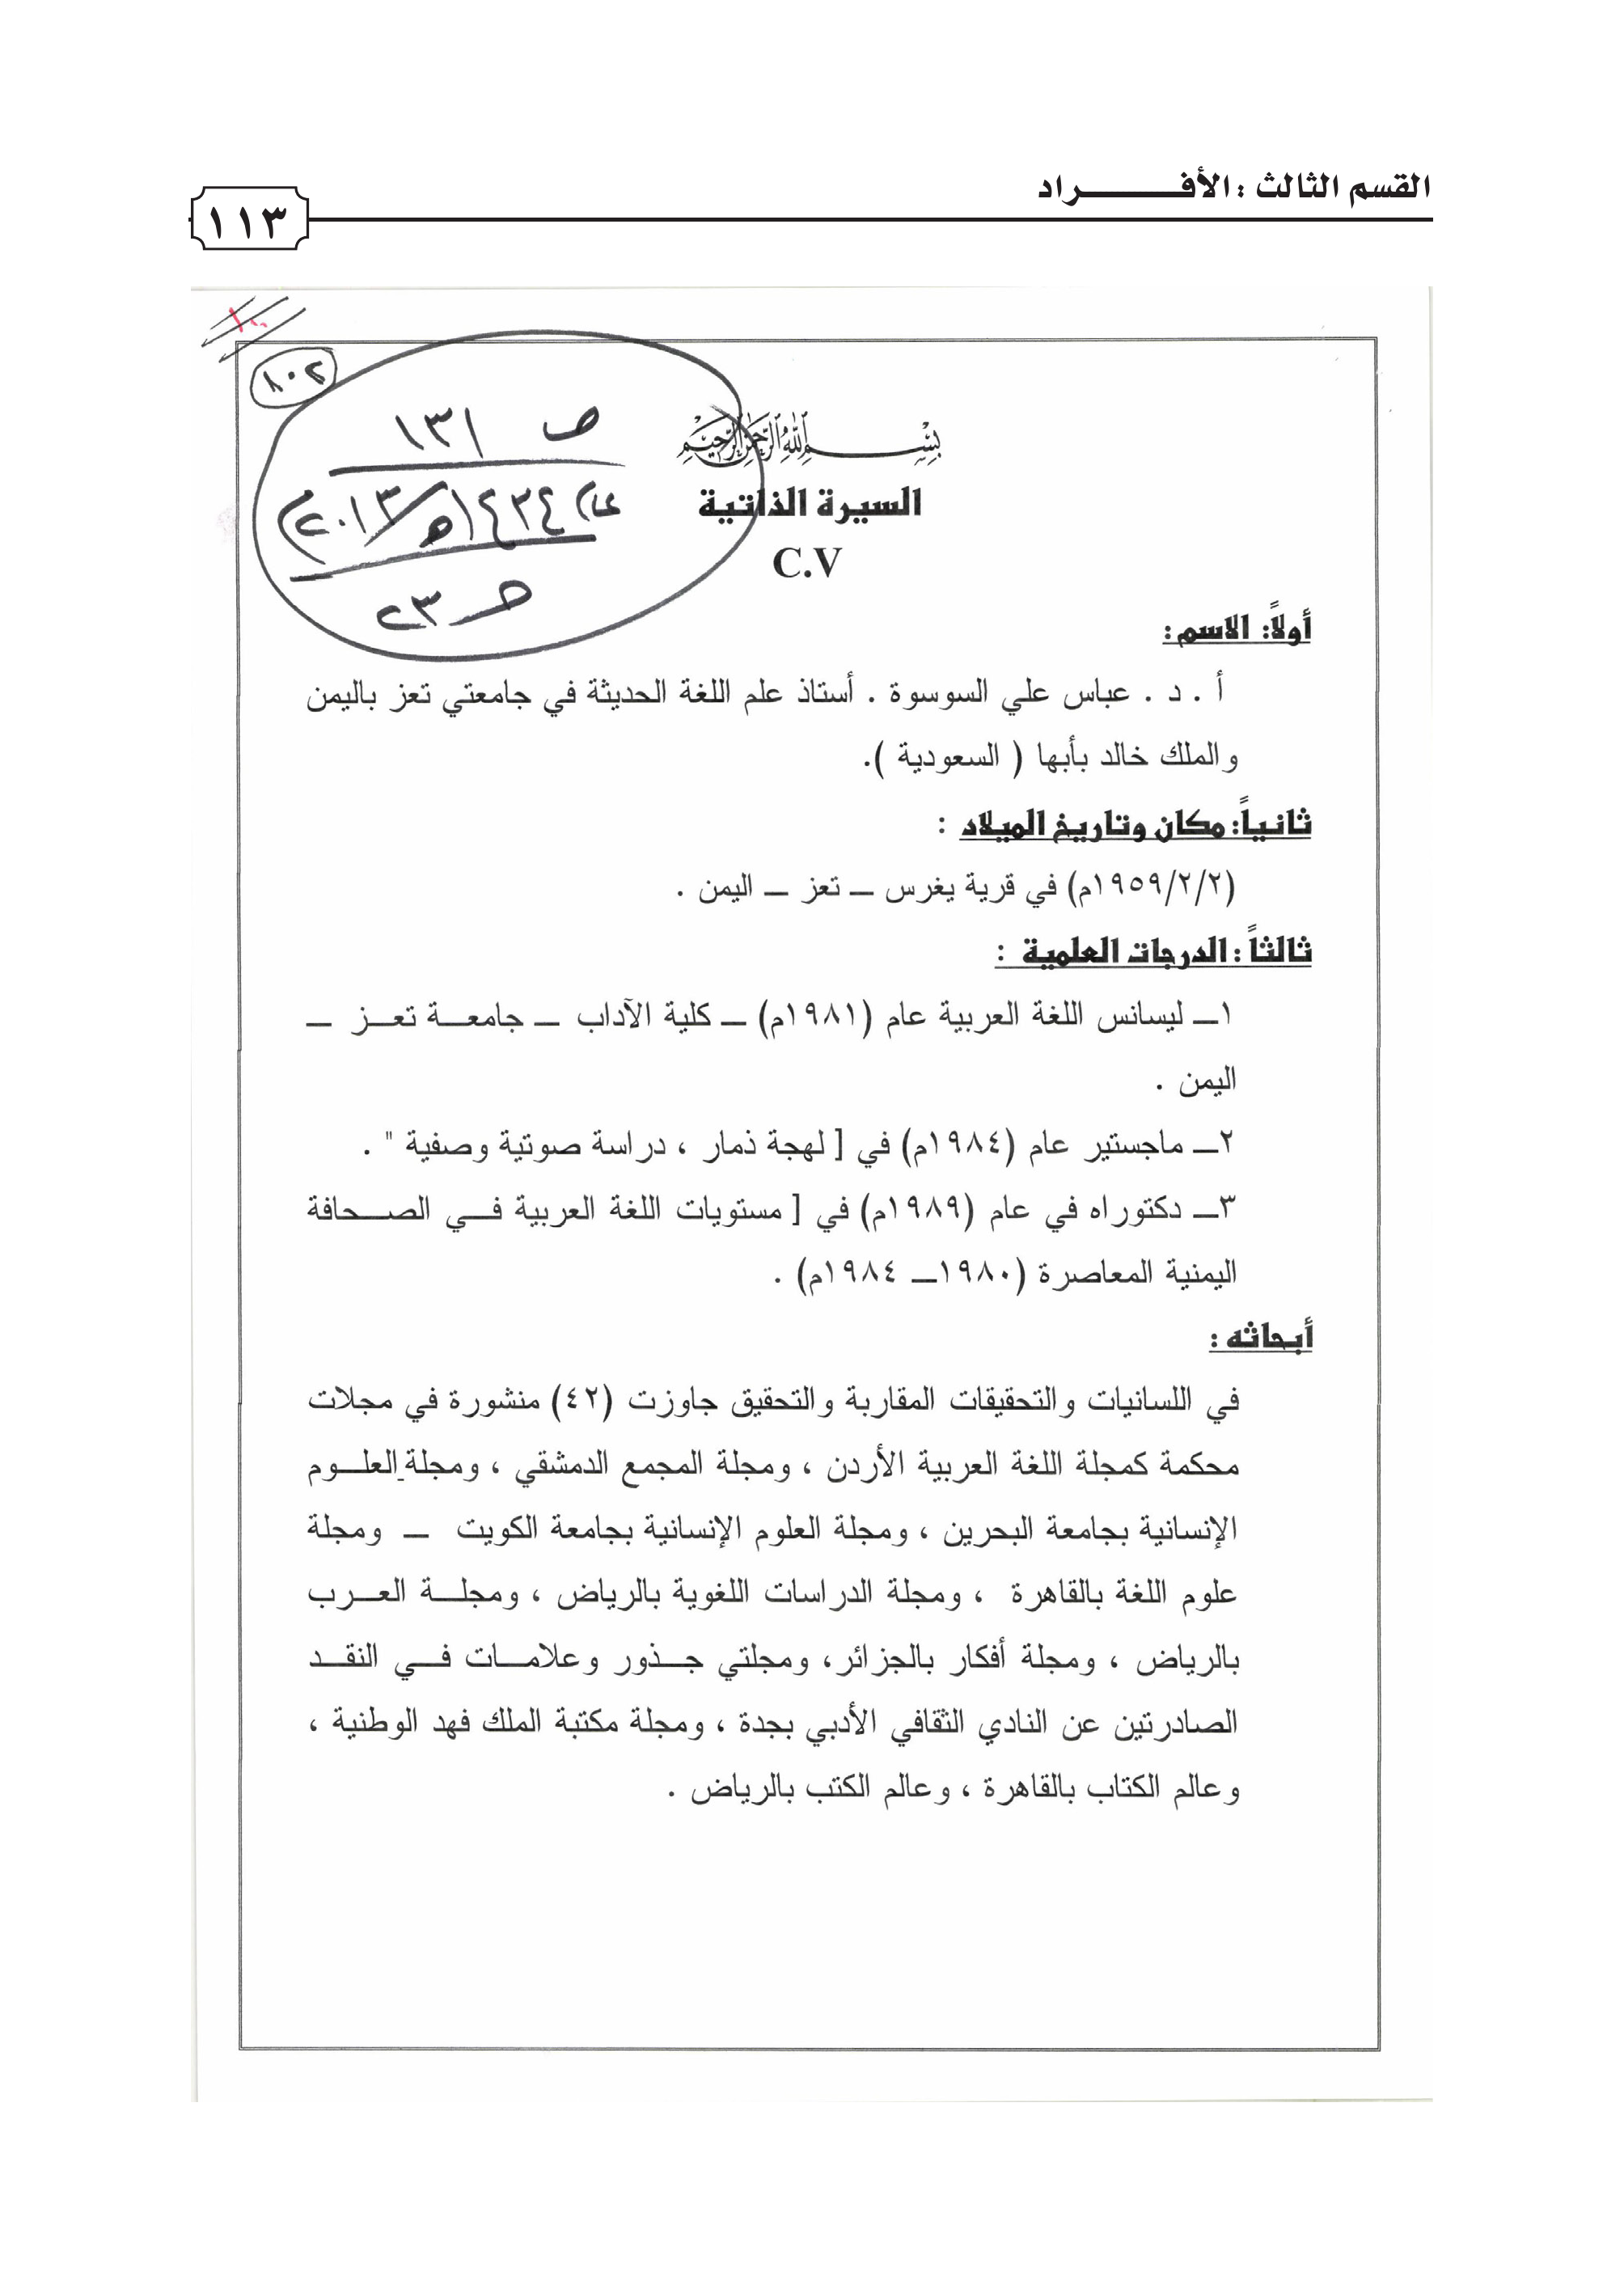 القسم الثالث : الأفـــــــراد
١١٣
٨٠٢
ص ١٣١
عام ١٤٣٤هـ/٢٠١٣م
حـ ٢٣
بسم الله الرحمن الرحيم
السيرة الذاتية
C.V
أولاً: الاسم :
أ . د . عباس علي السوسوة . أستاذ علم اللغة الحديثة في جامعتي تعز باليمن
والملك خالد بأبها ( السعودية ).
ثانياً: مكان وتاريخ الميلاد :
(١٩٥٩/٢/٢م) في قرية يغرس ــ تعز ــ اليمن .
ثالثاً : الدرجات العلمية :
١ــ ليسانس اللغة العربية عام (١٩٨١م) ــ كلية الآداب ــ جامعـــة تعـــز ــ
اليمن .
٢ــ ماجستير عام (١٩٨٤م) في [ لهجة ذمار ، دراسة صوتية وصفية " .
٣ــ دكتوراه في عام (١٩٨٩م) في [ مستويات اللغة العربية فـــي الصـــحافة
اليمنية المعاصرة (١٩٨٠ــ ١٩٨٤م) .
أبحاثه :
في اللسانيات والتحقيقات المقاربة والتحقيق جاوزت (٤٢) منشورة في مجلات
محكمة كمجلة اللغة العربية الأردن ، ومجلة المجمع الدمشقي ، ومجلة العلـــوم
الإنسانية بجامعة البحرين ، ومجلة العلوم الإنسانية بجامعة الكويت ــ ومجلة
علوم اللغة بالقاهرة ، ومجلة الدراسات اللغوية بالرياض ، ومجلـــة العـــرب
بالرياض ، ومجلة أفكار بالجزائر، ومجلتي جـــذور وعلامـــات فـــي النقـــد
الصادرتين عن النادي الثقافي الأدبي بجدة ، ومجلة مكتبة الملك فهد الوطنية ،
وعالم الكتاب بالقاهرة ، وعالم الكتب بالرياض .